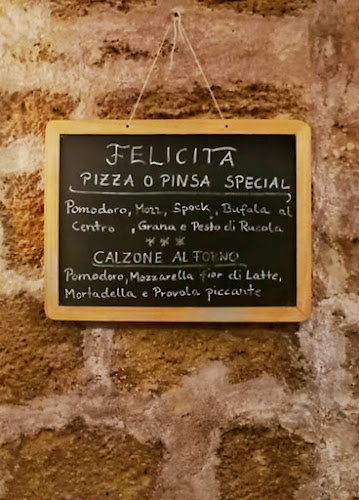 FELICITA
PIZZA O PINSA SPECIAL
Pomodoro, Mozz, Speck, Bufala al
Centro, Grana e Pesto di Rucola
***
CALZONE AL FORNO
Pomodoro, Mozzarella fior di Latte,
Mortadella e Provola piccante